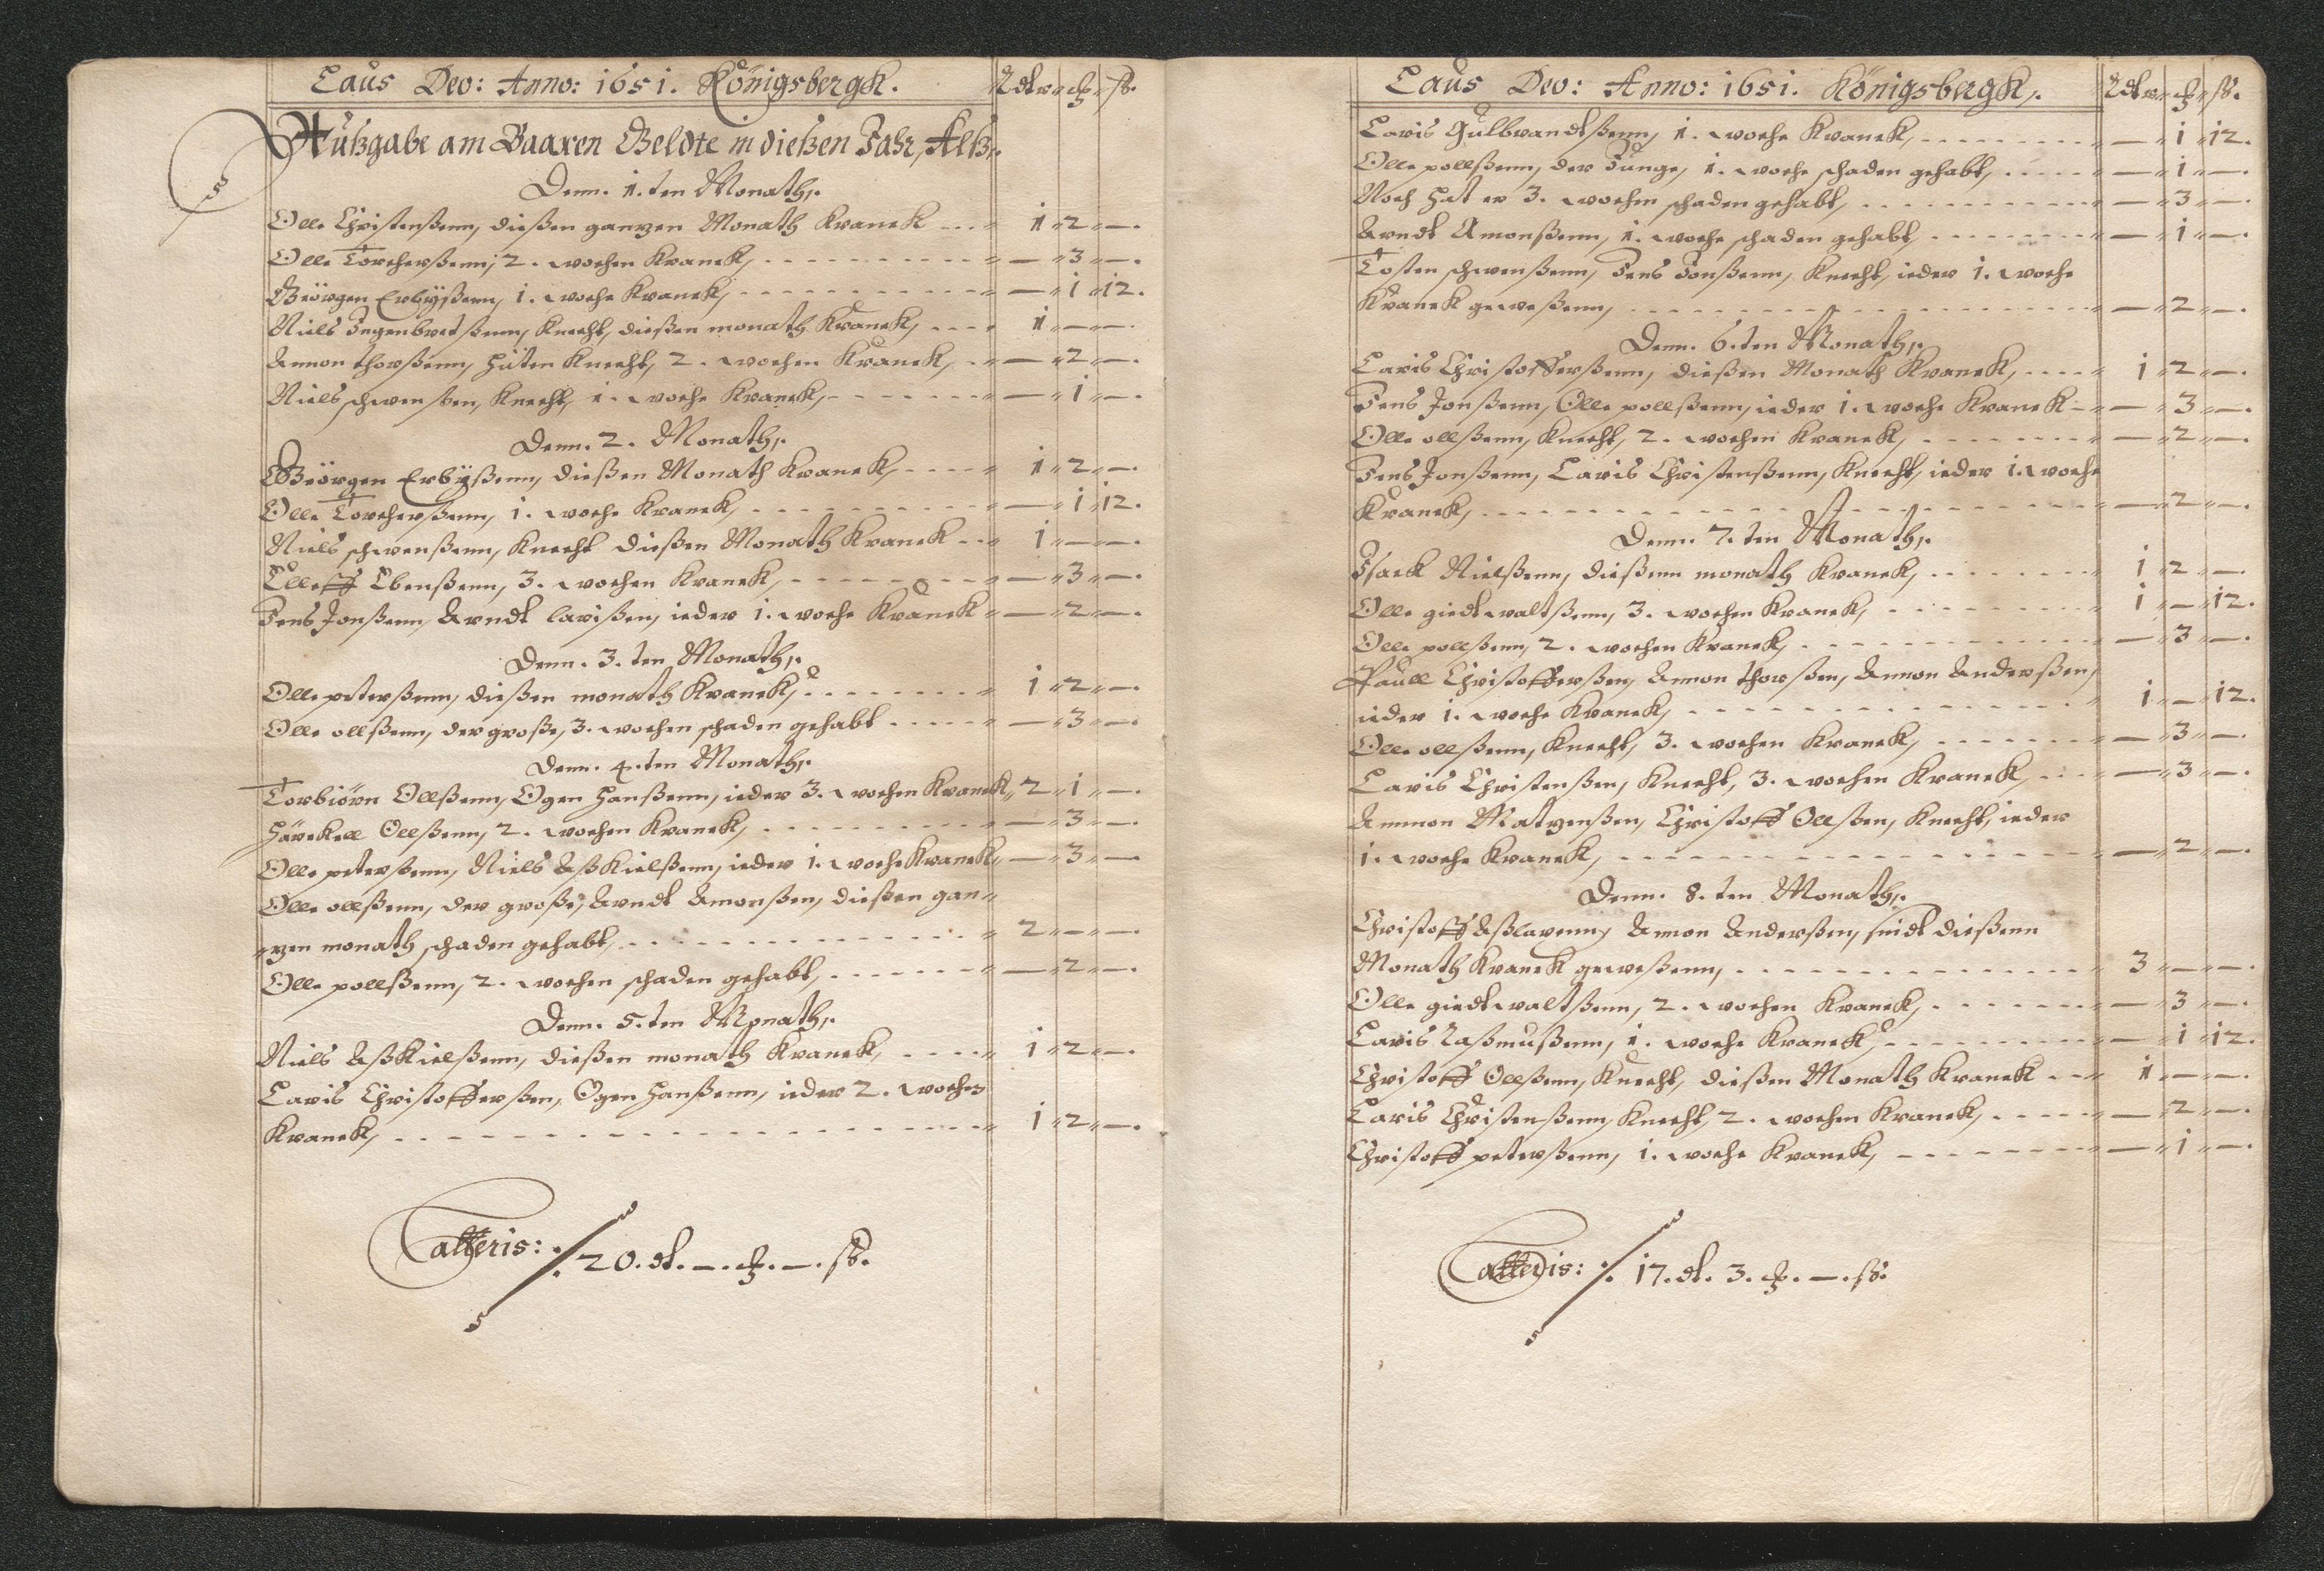 Laus Deo: Anno: 1651. Königsbergk. Rdlr ℔ ß.
Außgabe am Baaren Geldte in dießen Jahr, Alß,.
Denn. 1.ten Monath,.
Olle Christenßenn, dießen ganzen Monath Kranck --- " 1 " 2 " —.
Olle Torcherßenn, 2. wochen Kranck, - - - - " — " 3 " —.
Geörgen Erbyßenn, 1. woche Kranck, - - - - " — " 1 " 12.
Niels Ingenbretßenn, Knecht, dießen monath Kranck, - - - " 1 " — " —.
Ammon thorßenn, hüten Knecht, 2. wochen Kranck, - " — " 2 " —.
Niels schwenßen, Knecht, 1. woche Kranck, - - - - " — " 1 " —.
Denn. 2. Monath,.
Geörgen Erbyßenn, dießen Monath Kranck, - - - - " 1 " 2 " —.
Olle Torcherßenn, 1. woche Kranck, - - - - " — " 1 " 12.
Niels schwenßenn, Knecht dießen Monath Kranck - - " 1 " — " —.
Elleff Ebenßenn, 3. wochen Kranck, - - - - " — " 3 " —.
Jens Jonßenn, Arndt larißen, ieder 1. woche Kranck " — " 2 " —.
Denn. 3.ten Monath,.
Olle peterßenn, dießen monath Kranck, - - - - " 1 " 2 " —.
Olle ollßenn, der große, 3. wochen schaden gehabt - - - - " — " 3 " —.
Denn. 4.ten Monath,.
Torbiörn Ollßenn, Ogen Hanßenn, ieder 3. wochen Kranck " 2 " 1 " —.
Härckell Ollßenn, 2. wochen Kranck, - - - - " — " 3 " —.
Olle peterßenn, Niels Aßkielßenn, ieder 1. woche Kranck " — " 3 " —.
Olle ollßenn, der große, Arndt Amonßen, dießen gan"
"zen monath schaden gehabt, - - - - " 2 " — " —.
Olle pollßenn, 2. wochen schaden gehabt, - - - - " — " 2 " —.
Denn. 5.ten Monath,.
Niels Aßkielßenn, dießen monath Kranck, - - - - " 1 " 2 " —.
Laris Christofferßen, Ogen Hanßenn, ieder 2. wochen
Kranck, - - - - " 1 " 2 " —.
Latteris: ·/. 20. dl. —. ℔. —. ß.
Laus Deo: Anno: 1651. Königsbergk,. Rdlr ℔ ß.
Laris Gulbrandtßenn, 1. woche Kranck, - - - - " — " 1 " 12.
Olle pollßenn, der Junge, 1. woche schaden gehabt, - - - - " — " 1 " —.
Noch hat er 3. wochen schaden gehabt, - - - - " — " 3 " —.
Arndt Amonßenn, 1. woche schaden gehabt, - - - - " — " 1 " —.
Tosten schwenßenn, Jens Jonßenn, Knecht, ieder 1. woche
Kranck geweßenn, - - - - " — " 2 " —.
Denn. 6.ten Monath,.
Laris Christofferßenn, dießen Monath Kranck, - - - - " 1 " 2 " —.
Jens Jonßenn, Olle pollßenn, ieder 1. woche Kranck - " — " 3 " —.
Olle ollßenn, Knecht, 2. wochen Kranck, - - - - " — " 2 " —.
Jens Jonßenn, Laris Christenßenn, Knecht, ieder 1. woche
Kranck, - - - - " — " 2 " —.
Denn. 7.ten Monath,.
Isack Nielßenn, dießenn monath Kranck, - - - - " 1 " 2 " —.
Olle giedtwaltßenn, 3. wochen Kranck, - - - - " 1 " — " 12.
Olle pollßenn, 2. wochen Kranck, - - - - " — " 3 " —.
Paull Christofferßen, Ammon thorßen, Ammon Anderßen,
ieder 1. woche Kranck, - - - - " 1 " — " 12.
Olle ollßenn, Knecht, 3. wochen Kranck, - - - - " — " 3 " —.
Laris Christenßen, Knecht, 3. wochen Kranck, - - - " — " 3 " —.
Ammon Matzenßen, Christoff Ollßen, Knecht, ieder
1. woche Kranck, - - - - " — " 2 " —.
Denn. 8.ten Monath,.
Christoff Aßlarenn, Ammon Anderßen, sindt dießenn
Monath Kranck geweßenn, - - - - " 3 " — " —.
Olle giedtwaltßenn, 2. wochen Kranck, - - - - " — " 3 " —.
Laris Raßmußenn, 1. woche Kranck, - - - - " — " 1 " 12.
Christoff Ollßenn, Knecht, dießen Monath Kranck - - " 1 " — " —.
Laris Christenßenn, Knecht, 2. wochen Kranck, - - - - " — " 2 " —.
Christoff peterßenn, 1. woche Kranck, - - - - " — " 1 " —.
Latteris: ·/. 17. dl. 3. ℔. —. ß.